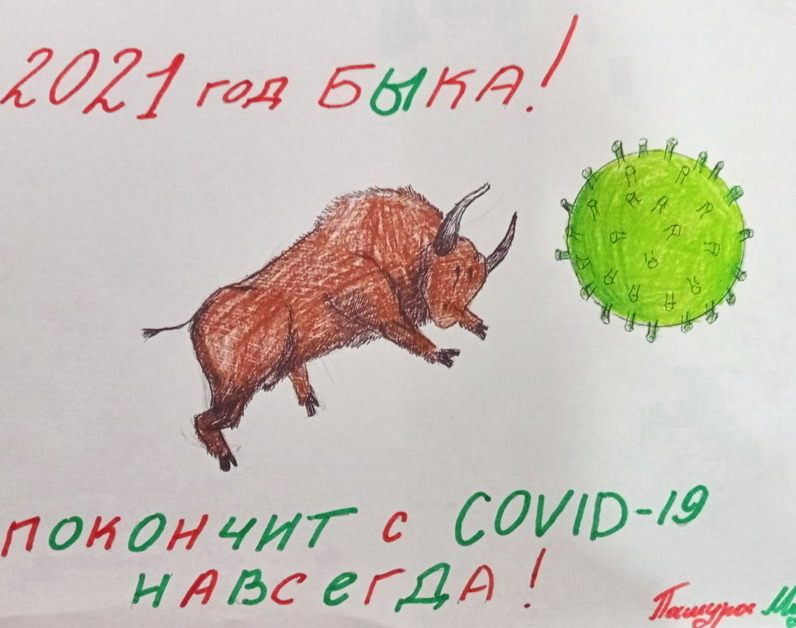 2021 год БЫКА!
ПОКОНЧИТ с COVID-19
НАВСеГДА!